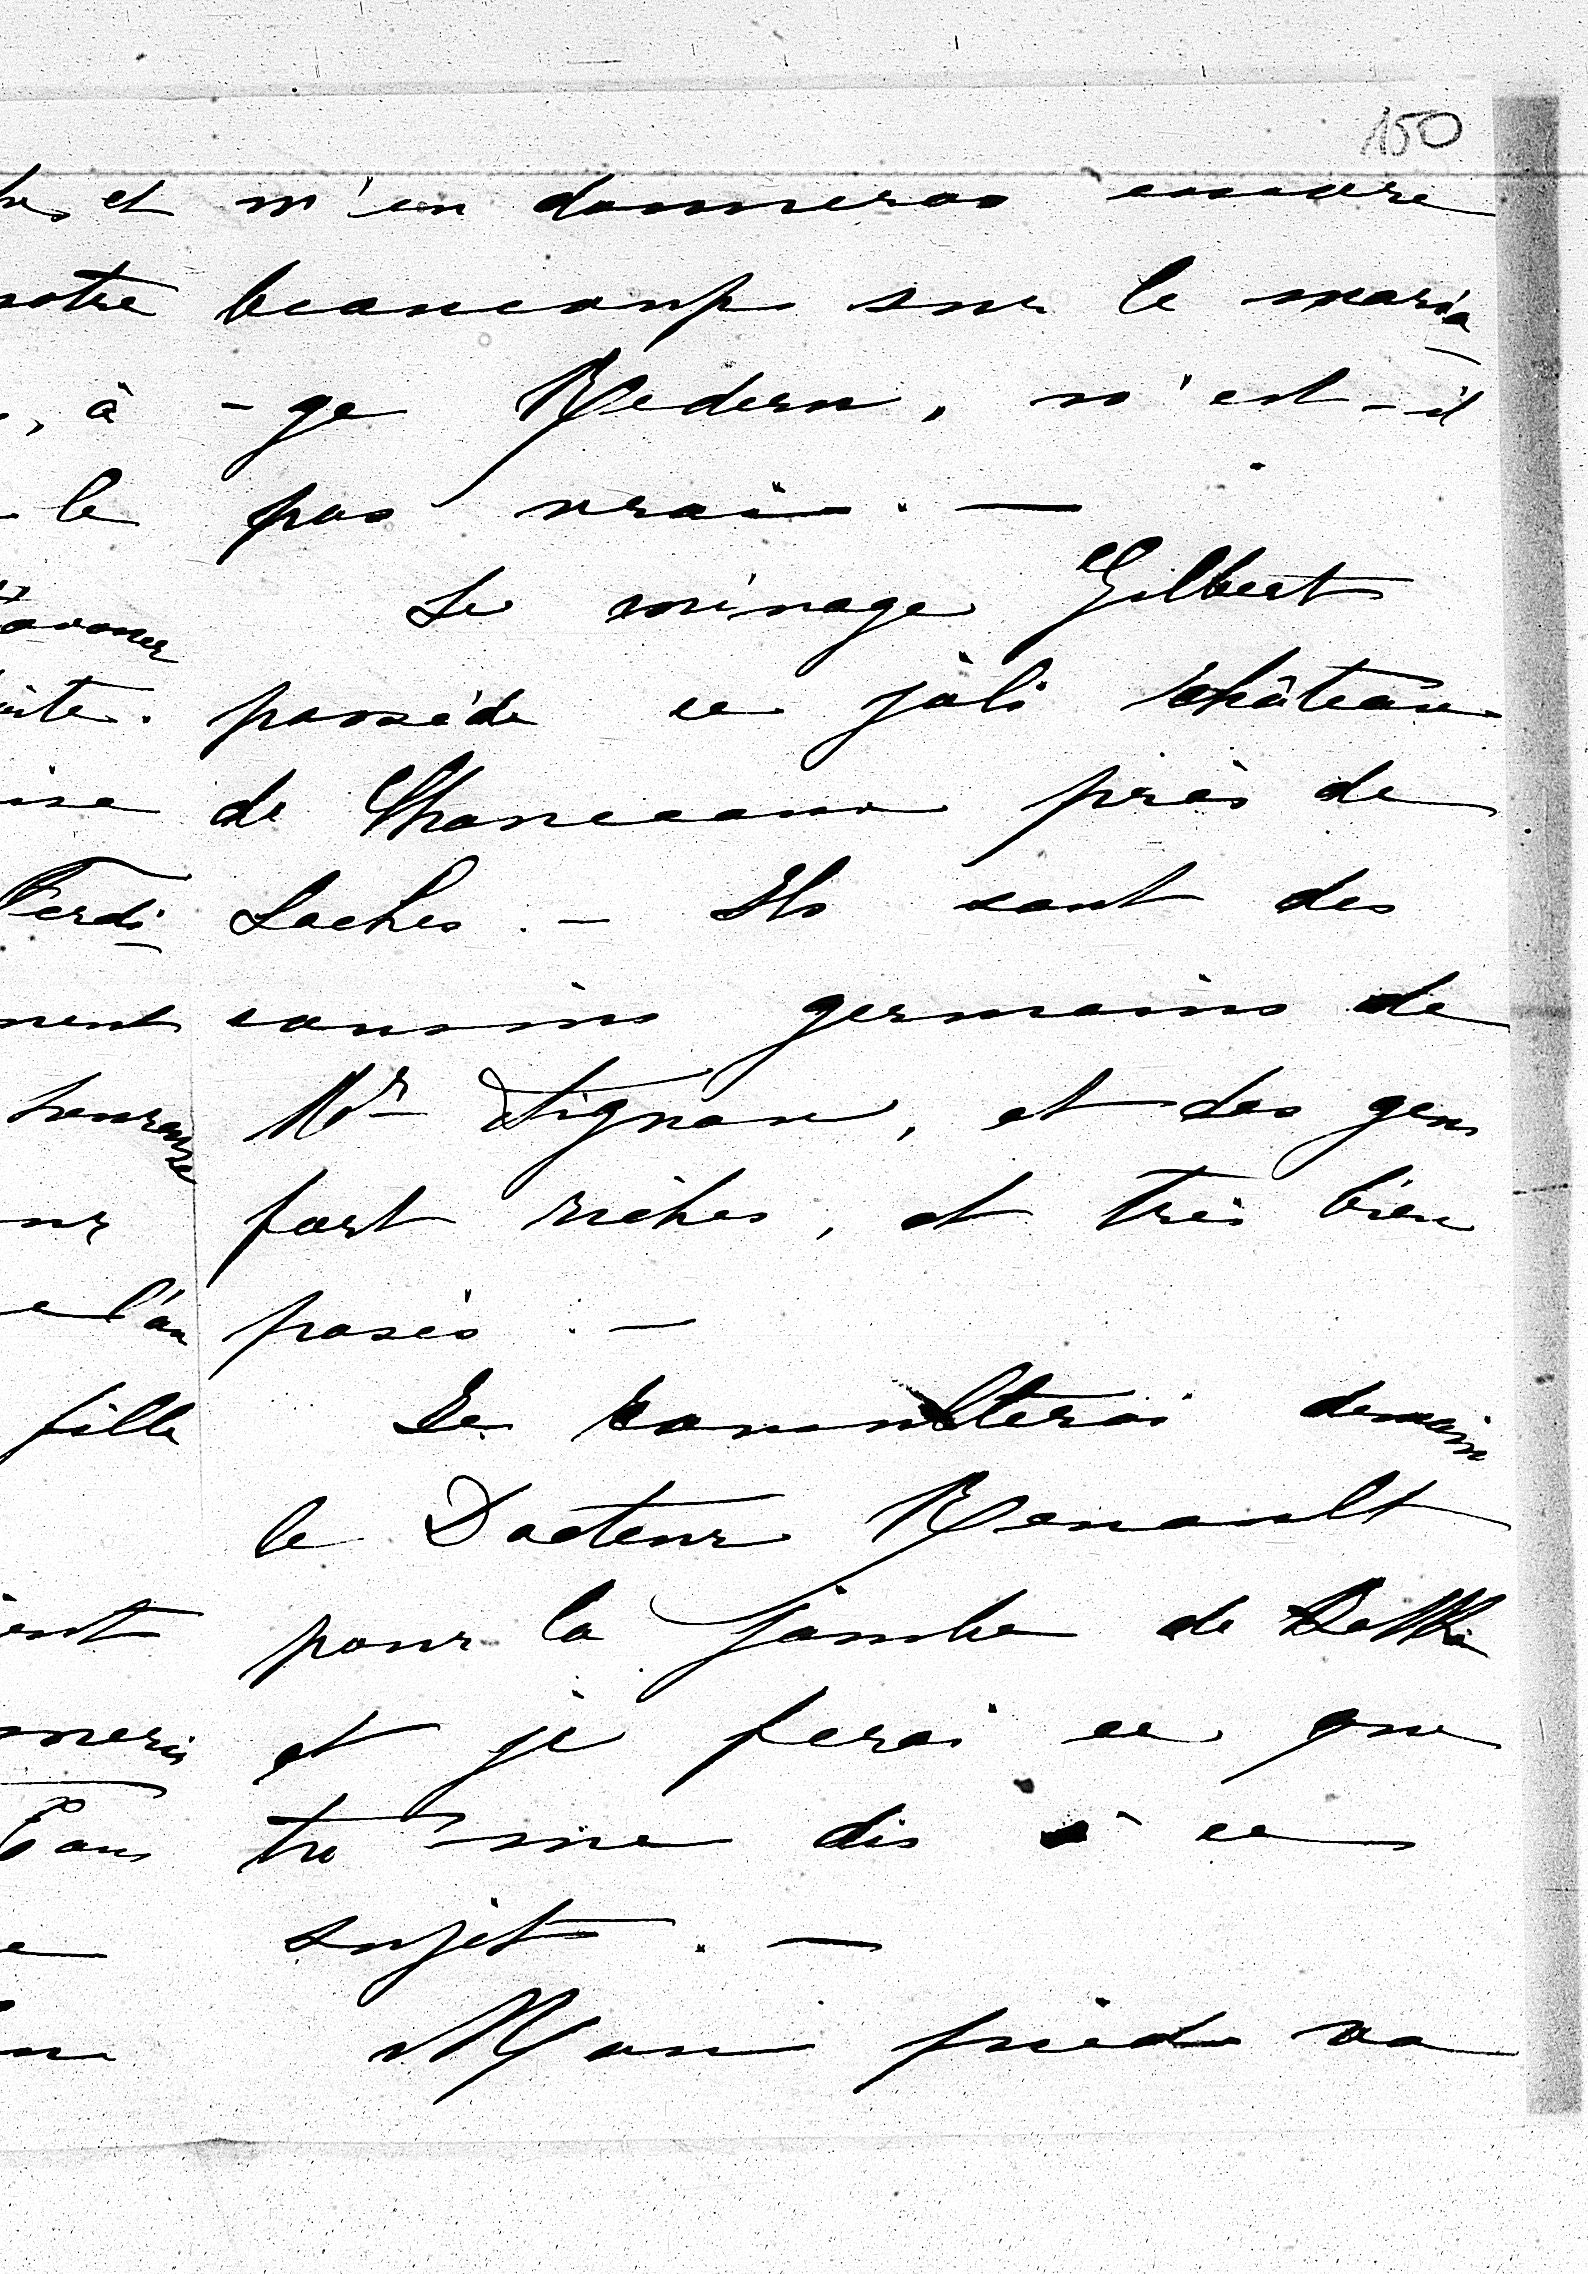 150
m'en donneras encore
beaucoup sur le maria
-ge Redern, n'est-il
pas vrai. —
Le ménage Gilbert
possède ce joli château
de Chanceaux près de
Loches. — Ils sont des
cousins germains de
Mr, et des gens
fort riches, et très bien
posés. —
Je consulterai demain
le Docteur Renault
pour la jambe de
et je ferai ce que
tu me dis à ce
sujet. —
Mon pied va
et
notre
, à
le
Ferdi
heureuse
l'au
fille